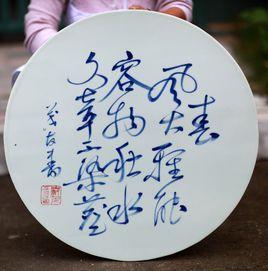 春
风大雅能
容物秋水
文章不染尘